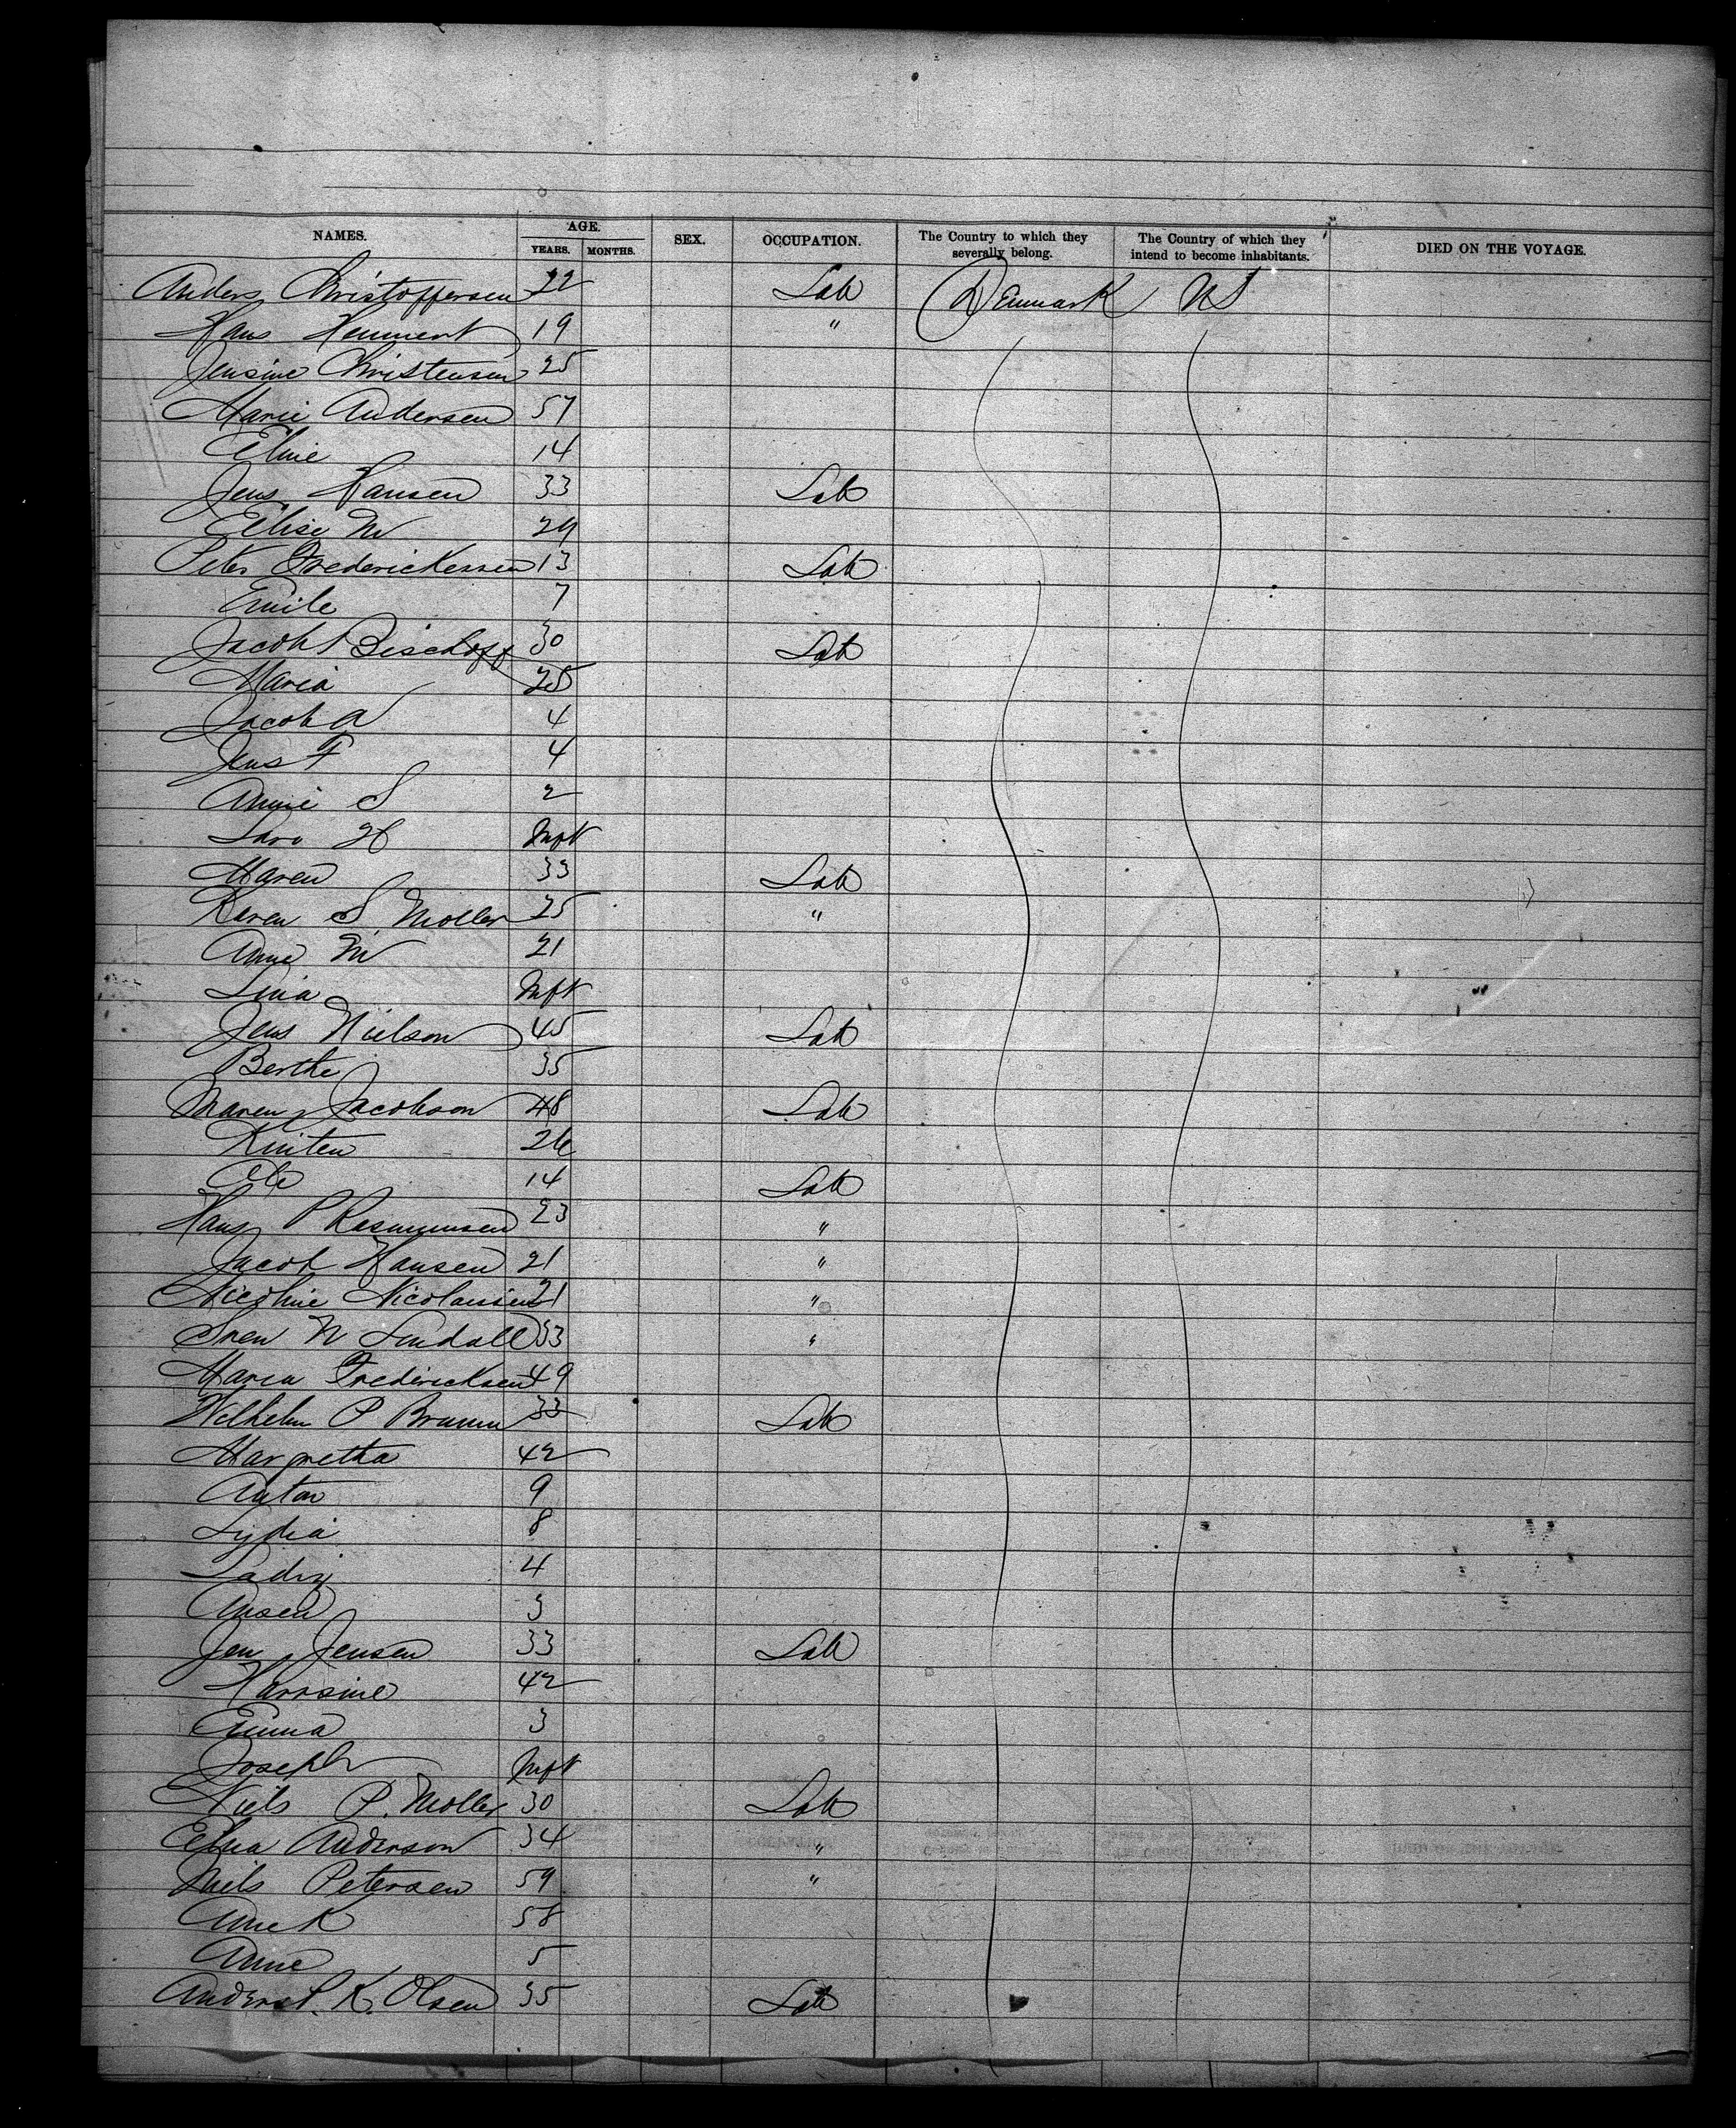 NAMES. AGE. YEARS. MONTHS. SEX. OCCUPATION. The Country to which they severally belong. The Country of which they intend to become inhabitants. DIED ON THE VOYAGE.
Anders Christoffersen 22 Lab Denmark US
Hans 19 "
Jensine Christensen 25
Marie Andersen 57
Eline 14
Jens Hansen 33 Lab
Elise M 29
Peter Frederickssen 13 Lab
Emile 7
Jacob Bischoff 30 Lab
Maria 25
Jacob A 4
Jens F 4
Annie S 2
H Inft
Maren 33 Lab
Karen S. Moller 25 "
Anne M 21
Lina Inft
Jens Nielson 45 Lab
Berthe 35
Maren Jacobson 48 Lab
26
Ole 14 Lab
Hans P Rasmussen 23 "
Jacob Hansen 21 "
Nicoline Nicolaisen 21 "
Sren N Lindall 53 "
Maria Fredericksen 49
Wilhelm P Bruun 33 Lab
Margretha 42
Anton 9
Lydia 8
4
3
Jen Jensen 33 Lab
42
Emma 3
Joseph Inft
Niels P. Moller 30 Lab
Anderson 34 "
Niels Petersen 59 "
Ane K 58
Anne 5
Anders P. K. Olsen 35 Lab